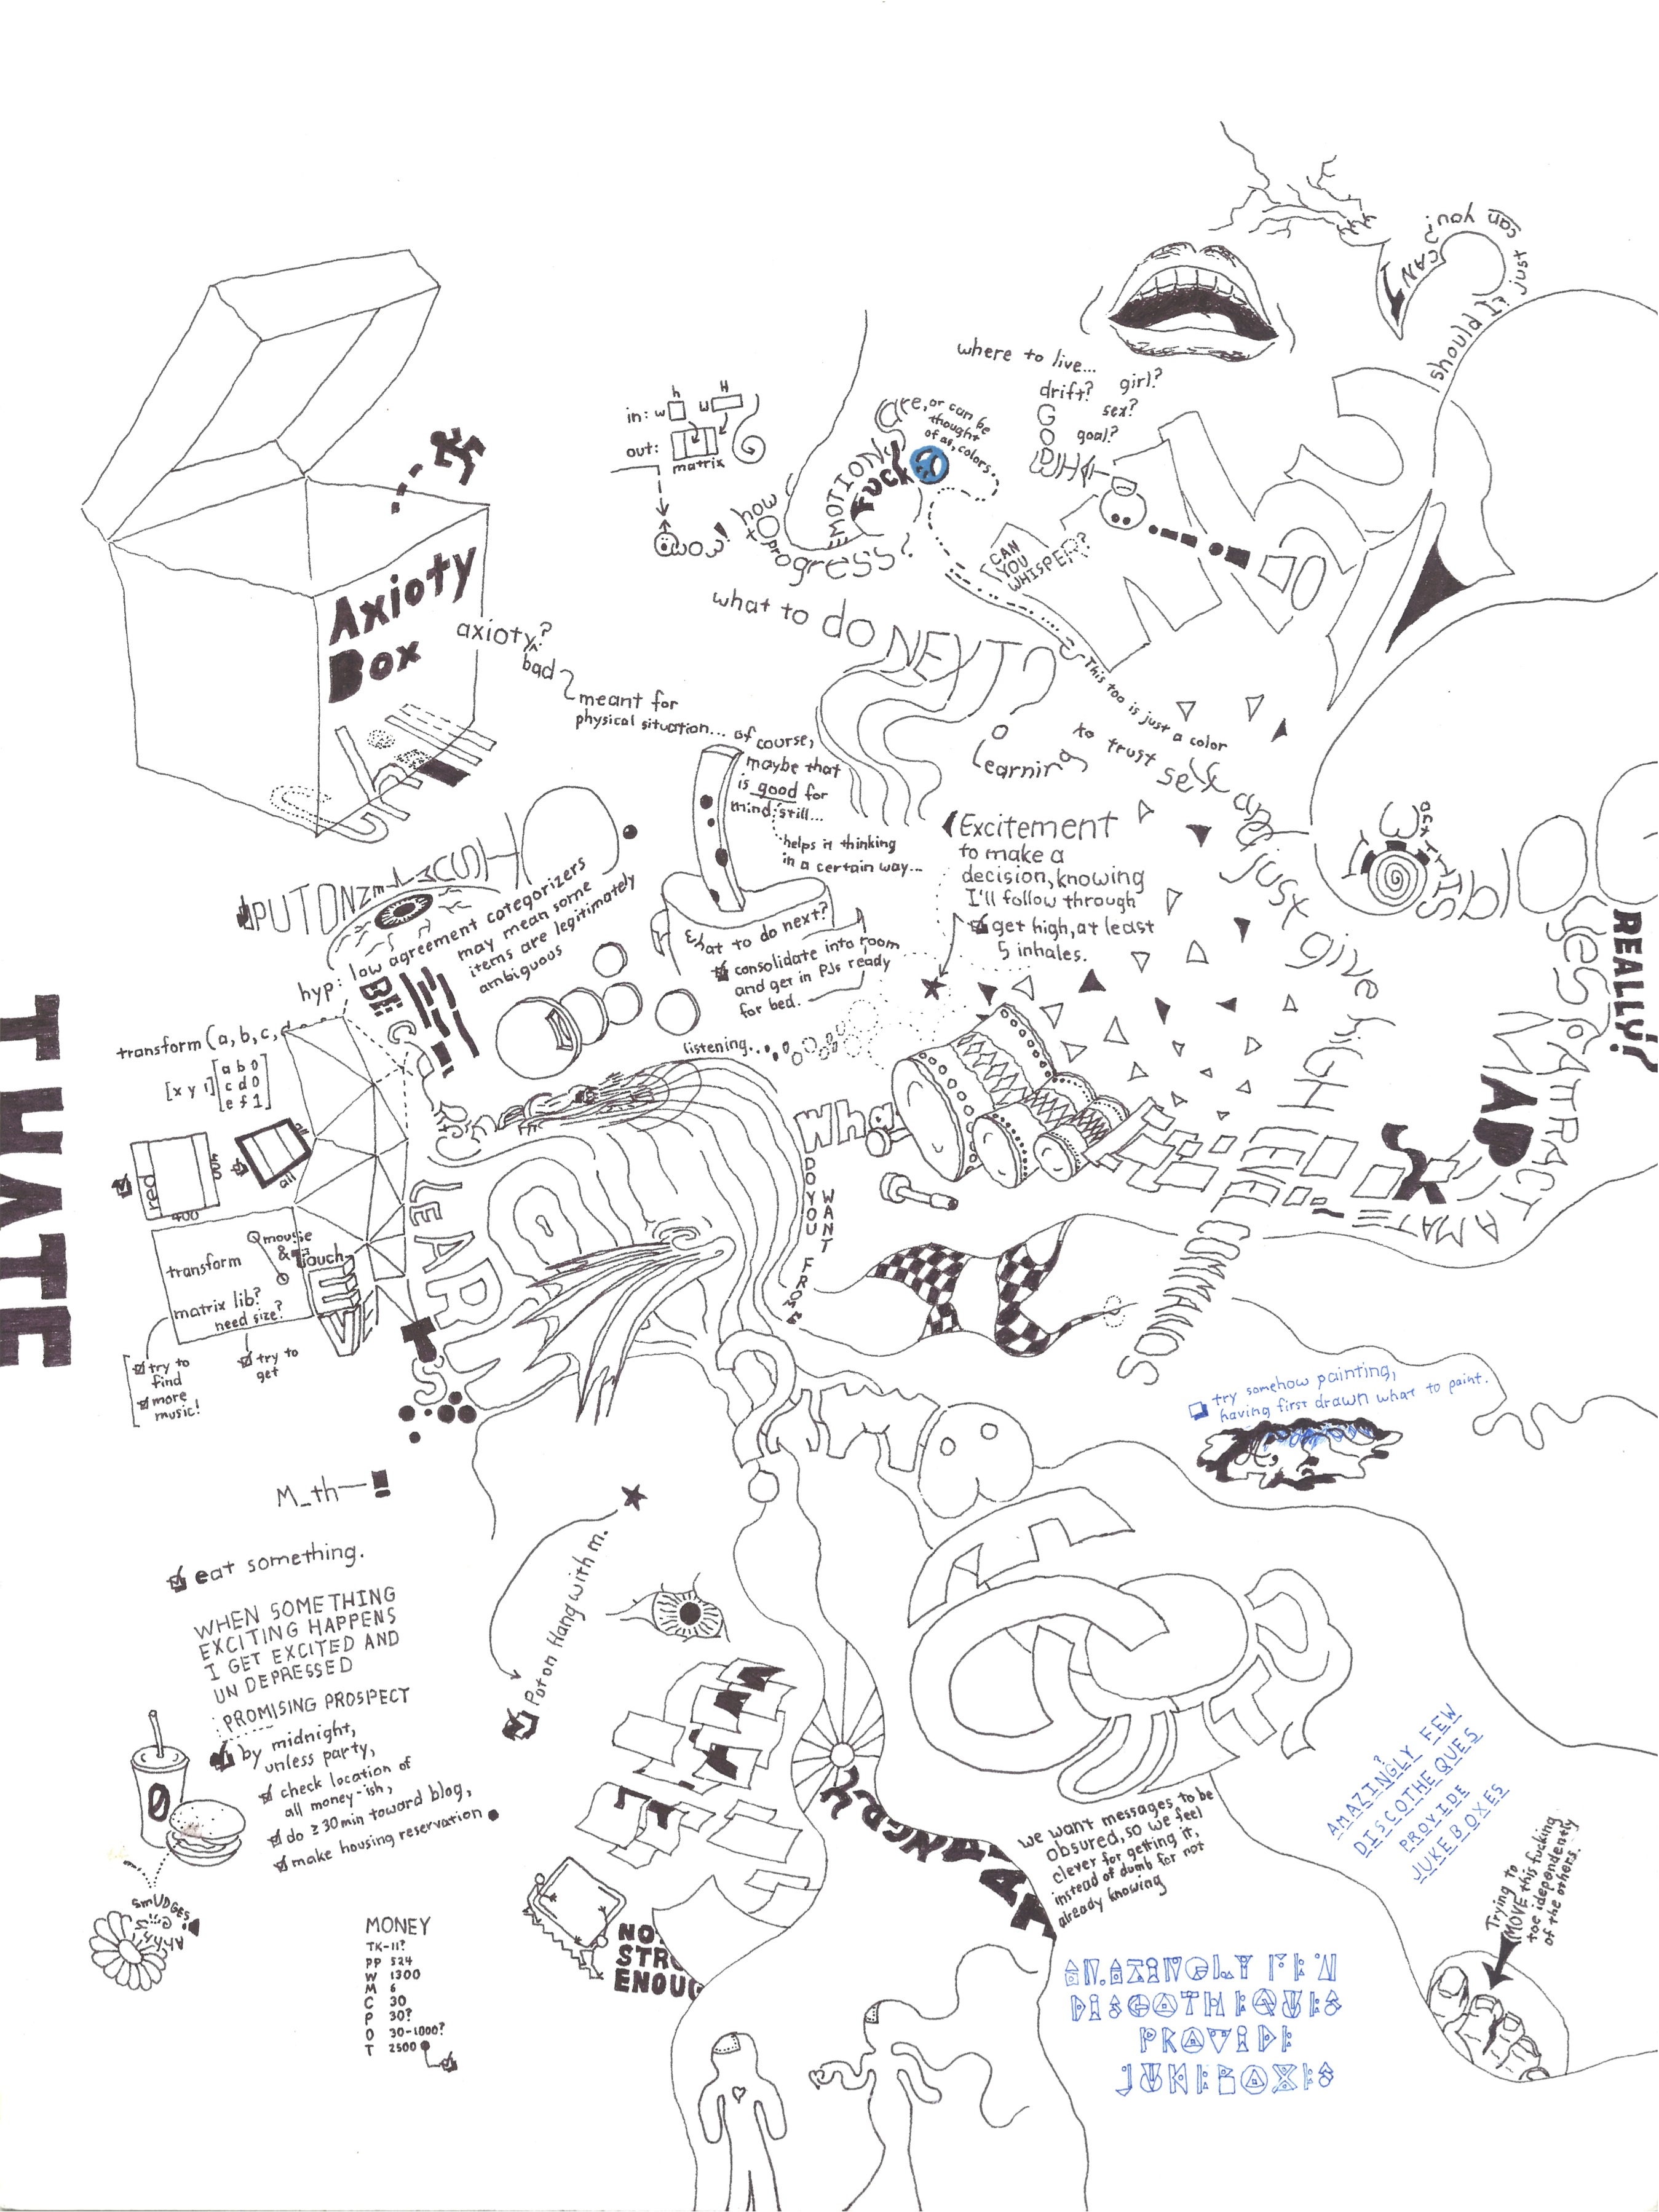 can you?
CAN I
should I? just
can you?
where to live...
drift? girl?
sex?
goal?
in: w h W H
out:
matrix
wow!
how
to
progress?
EMOTIONS
are, or can be
thought
of as, colors.
FUCK
CAN
YOU
WHISPER?
what to do NEXT?
This too is just a color
Axioty
Box
axioty?
bad
meant for
physical situation... of course,
maybe that
is good for
mind; still...
helps n thinking
in a certain way...
Learning
to trust self and just give HIGH LEVEL COMMANDS
Excitement
to make a
decision, knowing
I'll follow through
get high, at least
5 inhales.
PUT ON
hyp: low agreement categorizers
may mean some
items are legitimately
ambiguous
BE
what to do next?
consolidate into room
and get in PJs ready
for bed.
listening...
REALLY?
yes
ATTRACT
A MATE
MAP
I HATE
transform (a, b, c, d
[x y 1] [a b 0
c d 0
e f 1]
red
400
400
all
transform
mouse
& Touch
matrix lib?
need size?
try to
find
more
music!
try to
get
LEARN
Wha
DO YOU
WANT
FROM
try somehow painting,
having first drawn what to paint.
M_th—!
eat something.
WHEN SOMETHING
EXCITING HAPPENS
I GET EXCITED AND
UN DEPRESSED
PROMISING PROSPECT
by midnight,
unless party,
check location of
all money-ish,
do ≥30 min toward blog,
make housing reservation
Put on Hang with m.
smUDGES!
MONEY
TK-11?
PP 524
W 1300
M 6
C 30
P 30?
O 30-1000?
T 2500
NO
STR
ENOUG
ANGRY
AT
we want messages to be
obsured, so we feel
clever for getting it,
instead of dumb for not
already knowing
AMAZINGLY FEW
?
DISCOTHEQUES
PROVIDE
JUKEBOXES
Trying to
MOVE this fucking
toe idependently
of the others.
AMAZINGLY FEW
DISCOTHEQUES
PROVIDE
JUKEBOXES